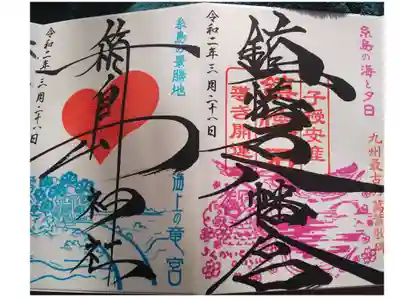 糸島の海と夕日
九州最古の萬葉歌碑
子授安産
導き開運
鎮懐石八幡宮
令和二年三月二十八日
糸島の景勝地
海上の竜宮
箱島神社
令和二年三月二十八日